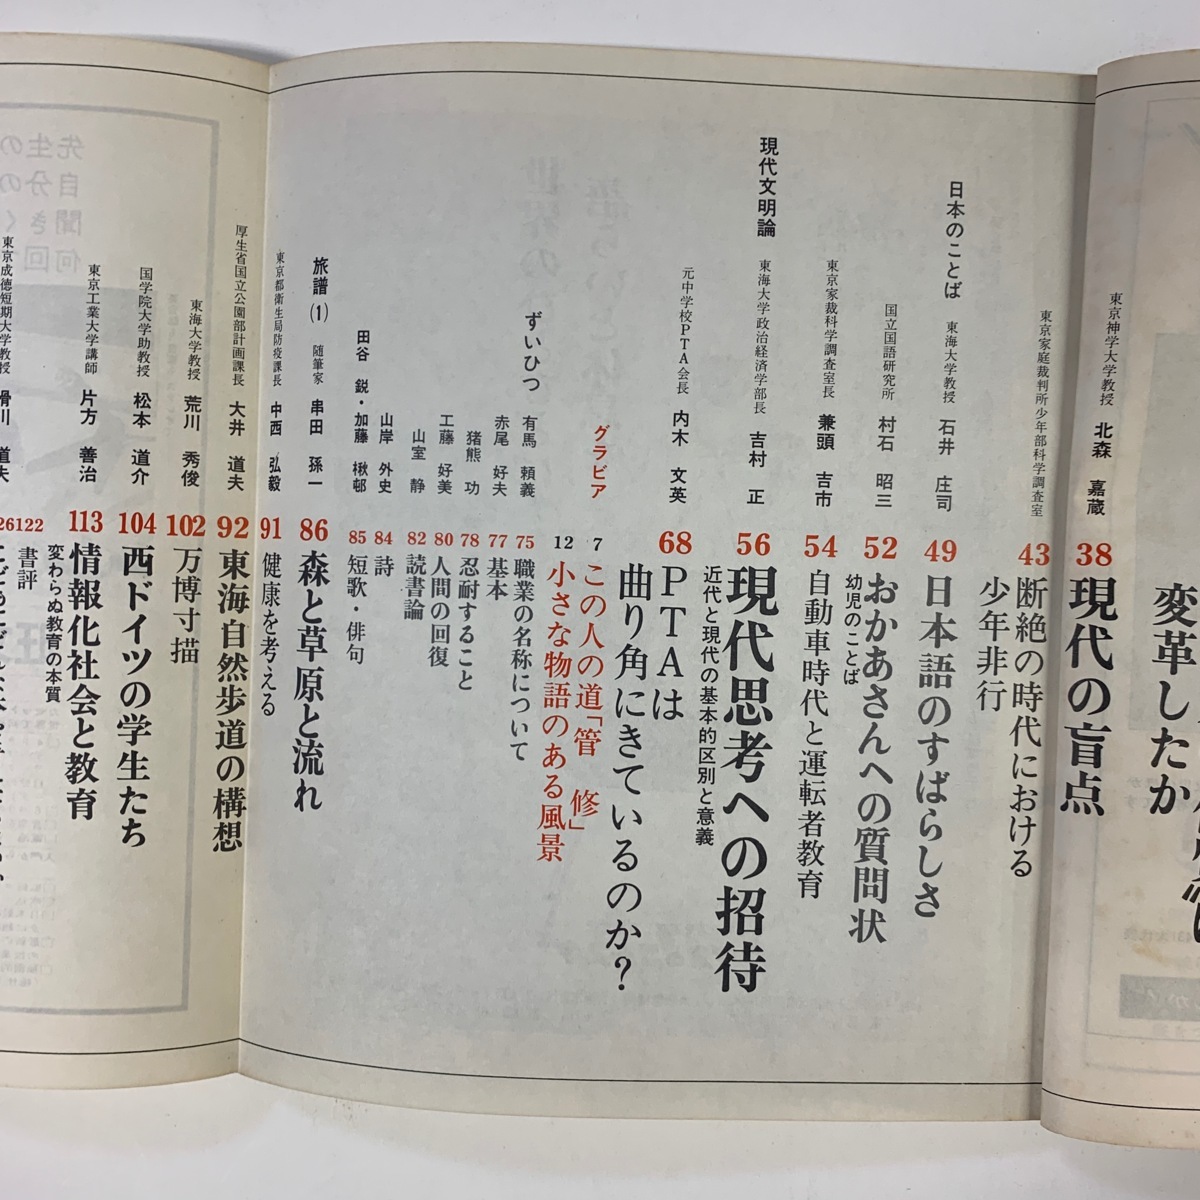 変革したか
東京神学大学教授 北森 嘉蔵
38 現代の盲点
東京家庭裁判所少年部科学調査室
43 断絶の時代における
少年非行
日本のことば 東海大学教授 石井 庄司
49 日本語のすばらしさ
国立国語研究所 村石 昭三
52 おかあさんへの質問状
幼児のことば
東京家裁科学調査室長 兼頭 吉市
54 自動車時代と運転者教育
現代文明論 東海大学政治経済学部長 吉村 正
56 現代思考への招待
近代と現代の基本的区別と意義
元中学校PTA会長 内木 文英
68 PTAは
曲り角にきているのか?
グラビア
7 この人の道「管 修」
12 小さな物語のある風景
ずいひつ
有馬 頼義 75 職業の名称について
赤尾 好夫 77 基本
猪熊 功 78 忍耐すること
工藤 好美 80 人間の回復
山室 静 82 読書論
山岸 外史 84 詩
田谷 鋭・加藤 楸邨 85 短歌・俳句
旅譜(1) 随筆家 串田 孫一
86 森と草原と流れ
東京都衛生局防疫課長 中西 弘毅
91 健康を考える
厚生省国立公園部計画課長 大井 道夫
92 東海自然歩道の構想
東海大学教授 荒川 秀俊
102 万博寸描
国学院大学助教授 松本 道介
104 西ドイツの学生たち
東京工業大学講師 片方 善治
113 情報化社会と教育
変わらぬ教育の本質
122 書評
東京成徳短期大学教授 滑川 道夫